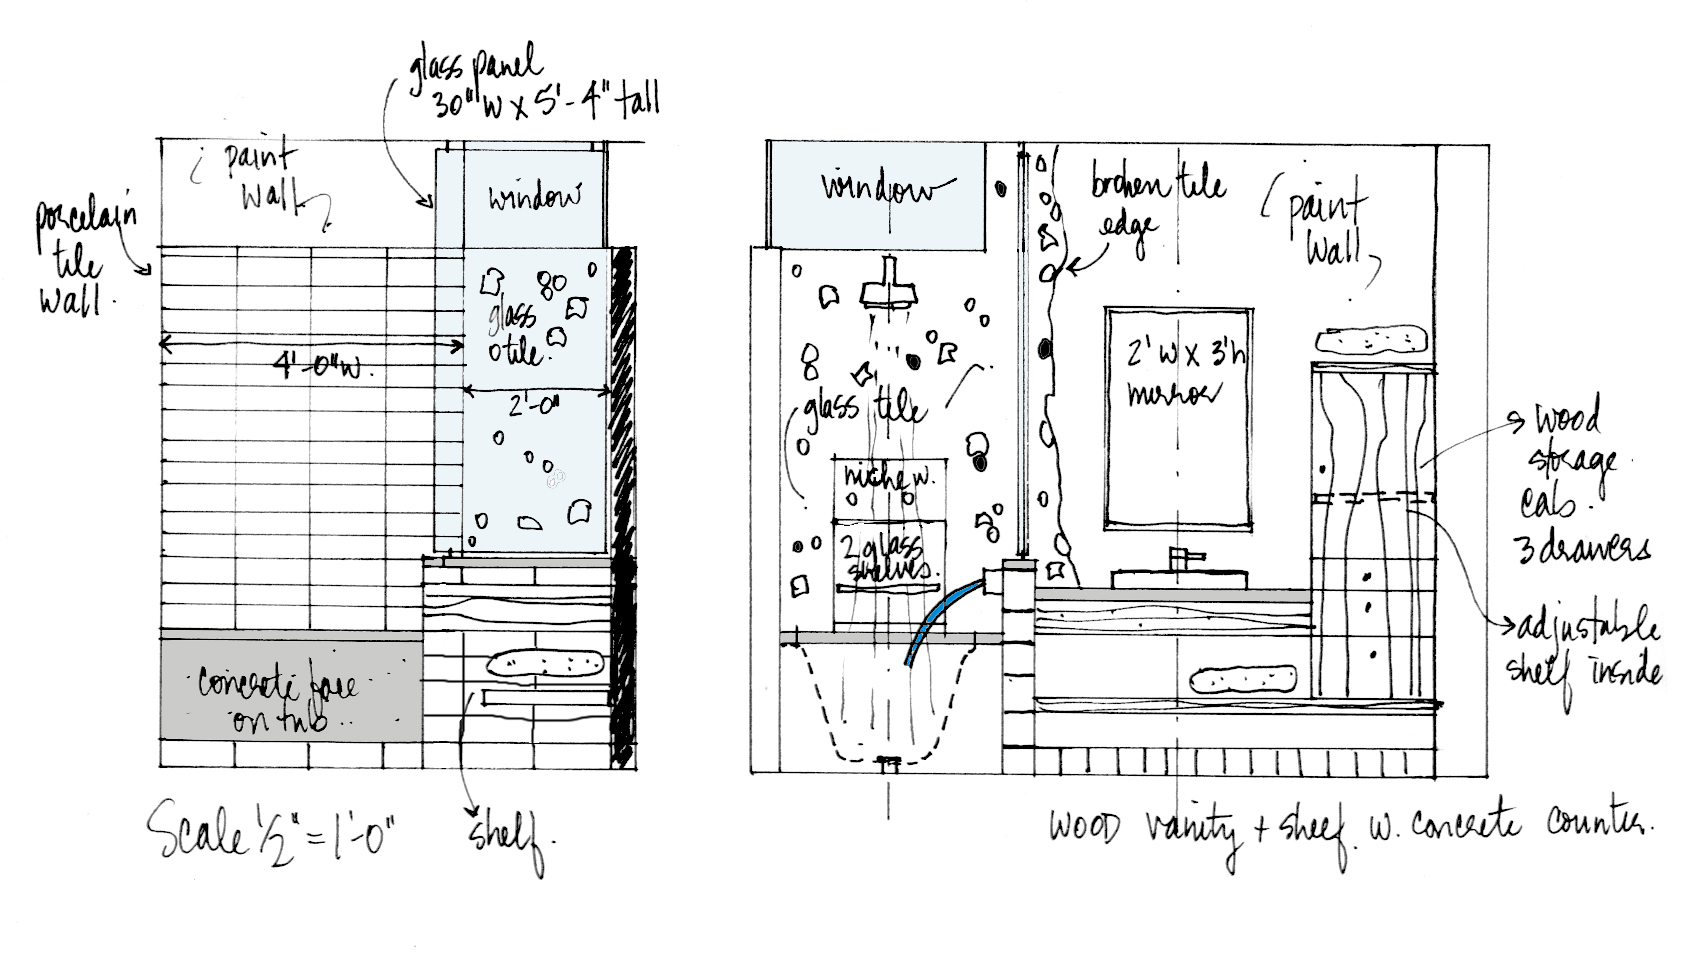 glass panel
30" W x 5'-4" tall
paint
wall
porcelain
tile
wall.
window
glass
tile.
4'-0" W.
2'-0"
concrete face
on tub..
Scale 1/2" = 1'-0"
shelf.
window
broken tile
edge
paint
wall
2' W x 3' h
mirror
glass tile
niche w.
2 glass
shelves.
wood
storage
cab.
3 drawers
adjustable
shelf inside
WOOD vanity + shelf w. concrete counter.